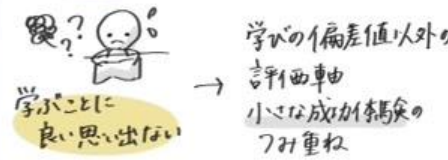 ??
学ぶことに
良い思い出ない
→
学びの偏差値以外の
評価軸
小さな成功体験の
つみ重ね